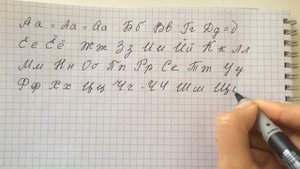 Аа = Аа = Аа Бб Вв Гг Дд = д
Ее Ёё Жж Зз Ии Йй Кк Лл
Мм Нн Оо Пп Рр Сс Тт Уу
Фф Хх Цц Чч - Чч Шш Щщ